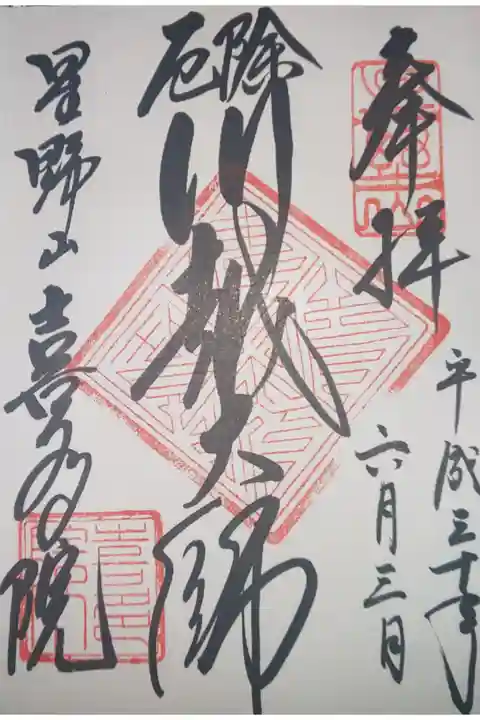 奉拝
平成三十年
六月三日
厄除
川越大師
星野山喜多院